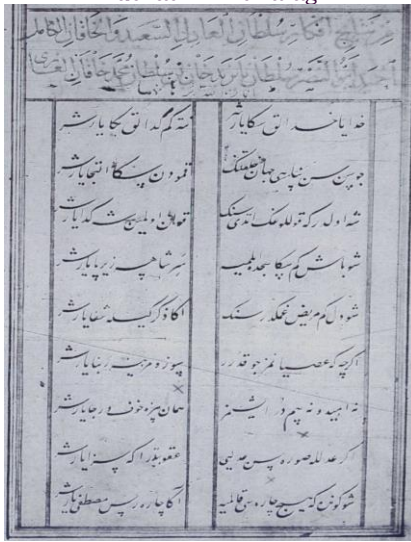 من نتایج افکار سلطان العادل السعید والخاقان الکامل
ابو النصر سلطان بایزید خان بن سلطان محمد خان الغازی
خدایا خدالق سکا یارشر نته کم گدالق بکا یارشر
چو سن سن پناهی جهان خلقنک قمودن سکا التجا یارشر
شه اولدر که قوللغک اتدی سنک قولک اولمین شه گدا یارشر
شو باش کم سکا سجده قلمیه زیر پا یارشر
شو دل کم مریض غمکدر سنک اکا ذکرکیله شفا یارشر
اگرچه که عصیانمز چوقدرر ربنا یارشر
نه امید و نه بیم در ایشمز همان بزه خوف و رجا یارشر
اگر عدلله صوره سن عدلی یی عقوبتدر اکا سزا یارشر
شو گون کم هیچ چاره سی قالمیه اکا چاره رس مصطفی یارشر